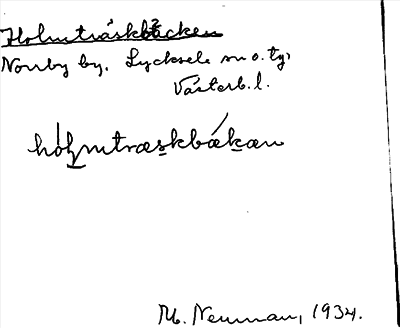 Holmträskbäcken
Norrby by. Lycksele sn o. tg.
Västerb. l.
hólmtræskbækæn
M. Neuman, 1934.